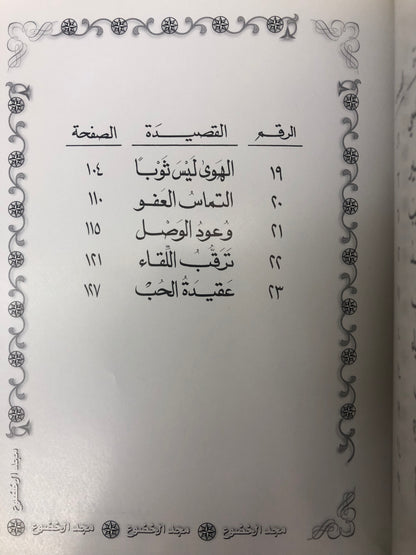 الرقم القصيدة الصفحة
١٩ الهوى ليس ثوبًا ١٠٤
٢٠ التماسُ العفو ١١٠
٢١ وعودُ الوَصْل ١١٥
٢٢ تَرَقُّبُ اللّقاء ١٢١
٢٣ عقيدةُ الحُبّ ١٢٧
مجد الخضوع
مجد الخضوع مجد الخضوع مجد الخضوع